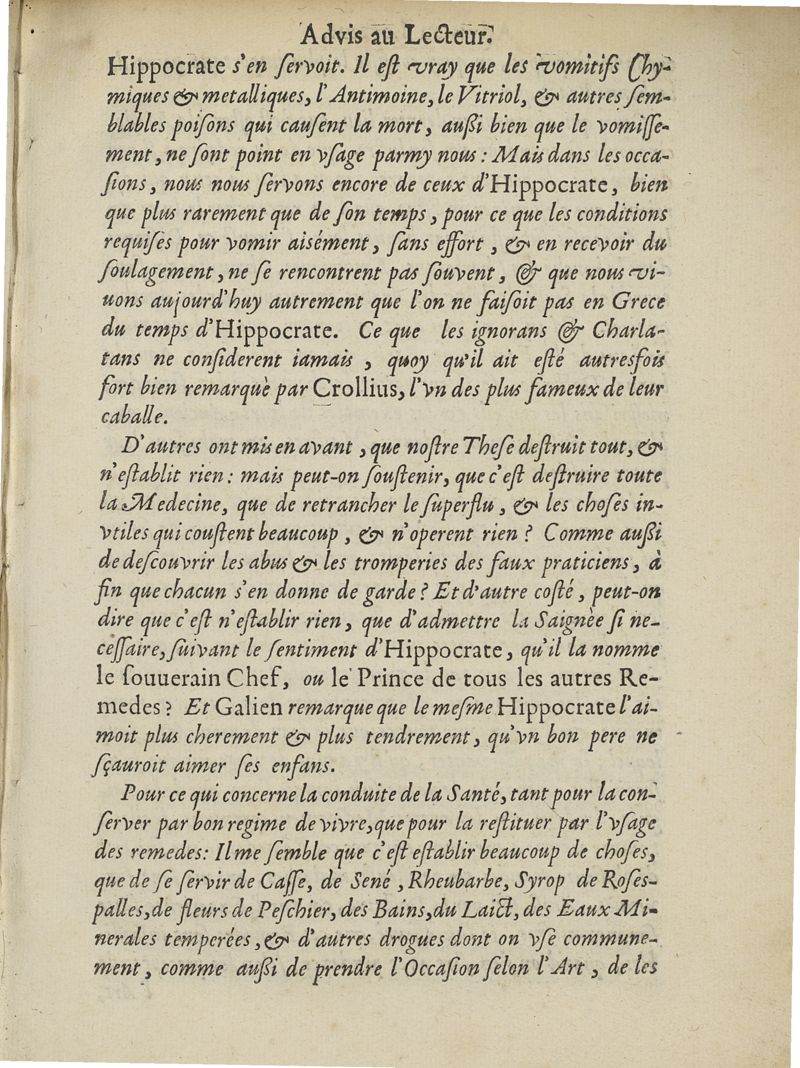 Advis au Lecteur.
Hippocrate s'en ſervoit. Il eſt vray que les vomitifs Chy-
miques & metalliques, l'Antimoine, le Vitriol, & autres ſem-
blables poiſons qui cauſent la mort, auſſi bien que le vomiſſe-
ment, ne ſont point en vſage parmy nous : Mais dans les occa-
ſions, nous nous ſervons encore de ceux d'Hippocrate, bien
que plus rarement que de ſon temps, pour ce que les conditions
requiſes pour vomir aisément, ſans effort, & en recevoir du
ſoulagement, ne ſe rencontrent pas ſouvent, & que nous vi-
uons aujourd'huy autrement que l'on ne faiſoit pas en Grece
du temps d'Hippocrate. Ce que les ignorans & Charla-
tans ne conſiderent iamais, quoy qu'il ait eſté autresfois
fort bien remarqué par Crollius, l'vn des plus fameux de leur
caballe.
D'autres ont mis en avant, que noſtre Theſe deſtruit tout, &
n'eſtablit rien : mais peut-on ſouſtenir, que c'eſt deſtruire toute
la Medecine, que de retrancher le ſuperflu, & les choſes in-
vtiles qui couſtent beaucoup, & n'operent rien ? Comme auſſi
de deſcouvrir les abus & les tromperies des faux praticiens, à
fin que chacun s'en donne de garde ? Et d'autre coſté, peut-on
dire que c'eſt n'eſtablir rien, que d'admettre la Saignée ſi ne-
ceſſaire, ſuivant le ſentiment d'Hippocrate, qu'il la nomme
le ſouuerain Chef, ou le Prince de tous les autres Re-
medes ? Et Galien remarque que le meſme Hippocrate l'ai-
moit plus cherement & plus tendrement, qu'vn bon pere ne
ſçauroit aimer ſes enfans.
Pour ce qui concerne la conduite de la Santé, tant pour la con-
ſerver par bon regime de vivre, que pour la reſtituer par l'vſage
des remedes : Il me ſemble que c'eſt eſtablir beaucoup de choſes,
que de ſe ſervir de Caſſe, de Sené, Rheubarbe, Syrop de Roſes-
palles, de fleurs de Peſchier, des Bains, du Laict, des Eaux Mi-
nerales temperées, & d'autres drogues dont on vſe commune-
ment, comme auſſi de prendre l'Occaſion ſelon l'Art, de les